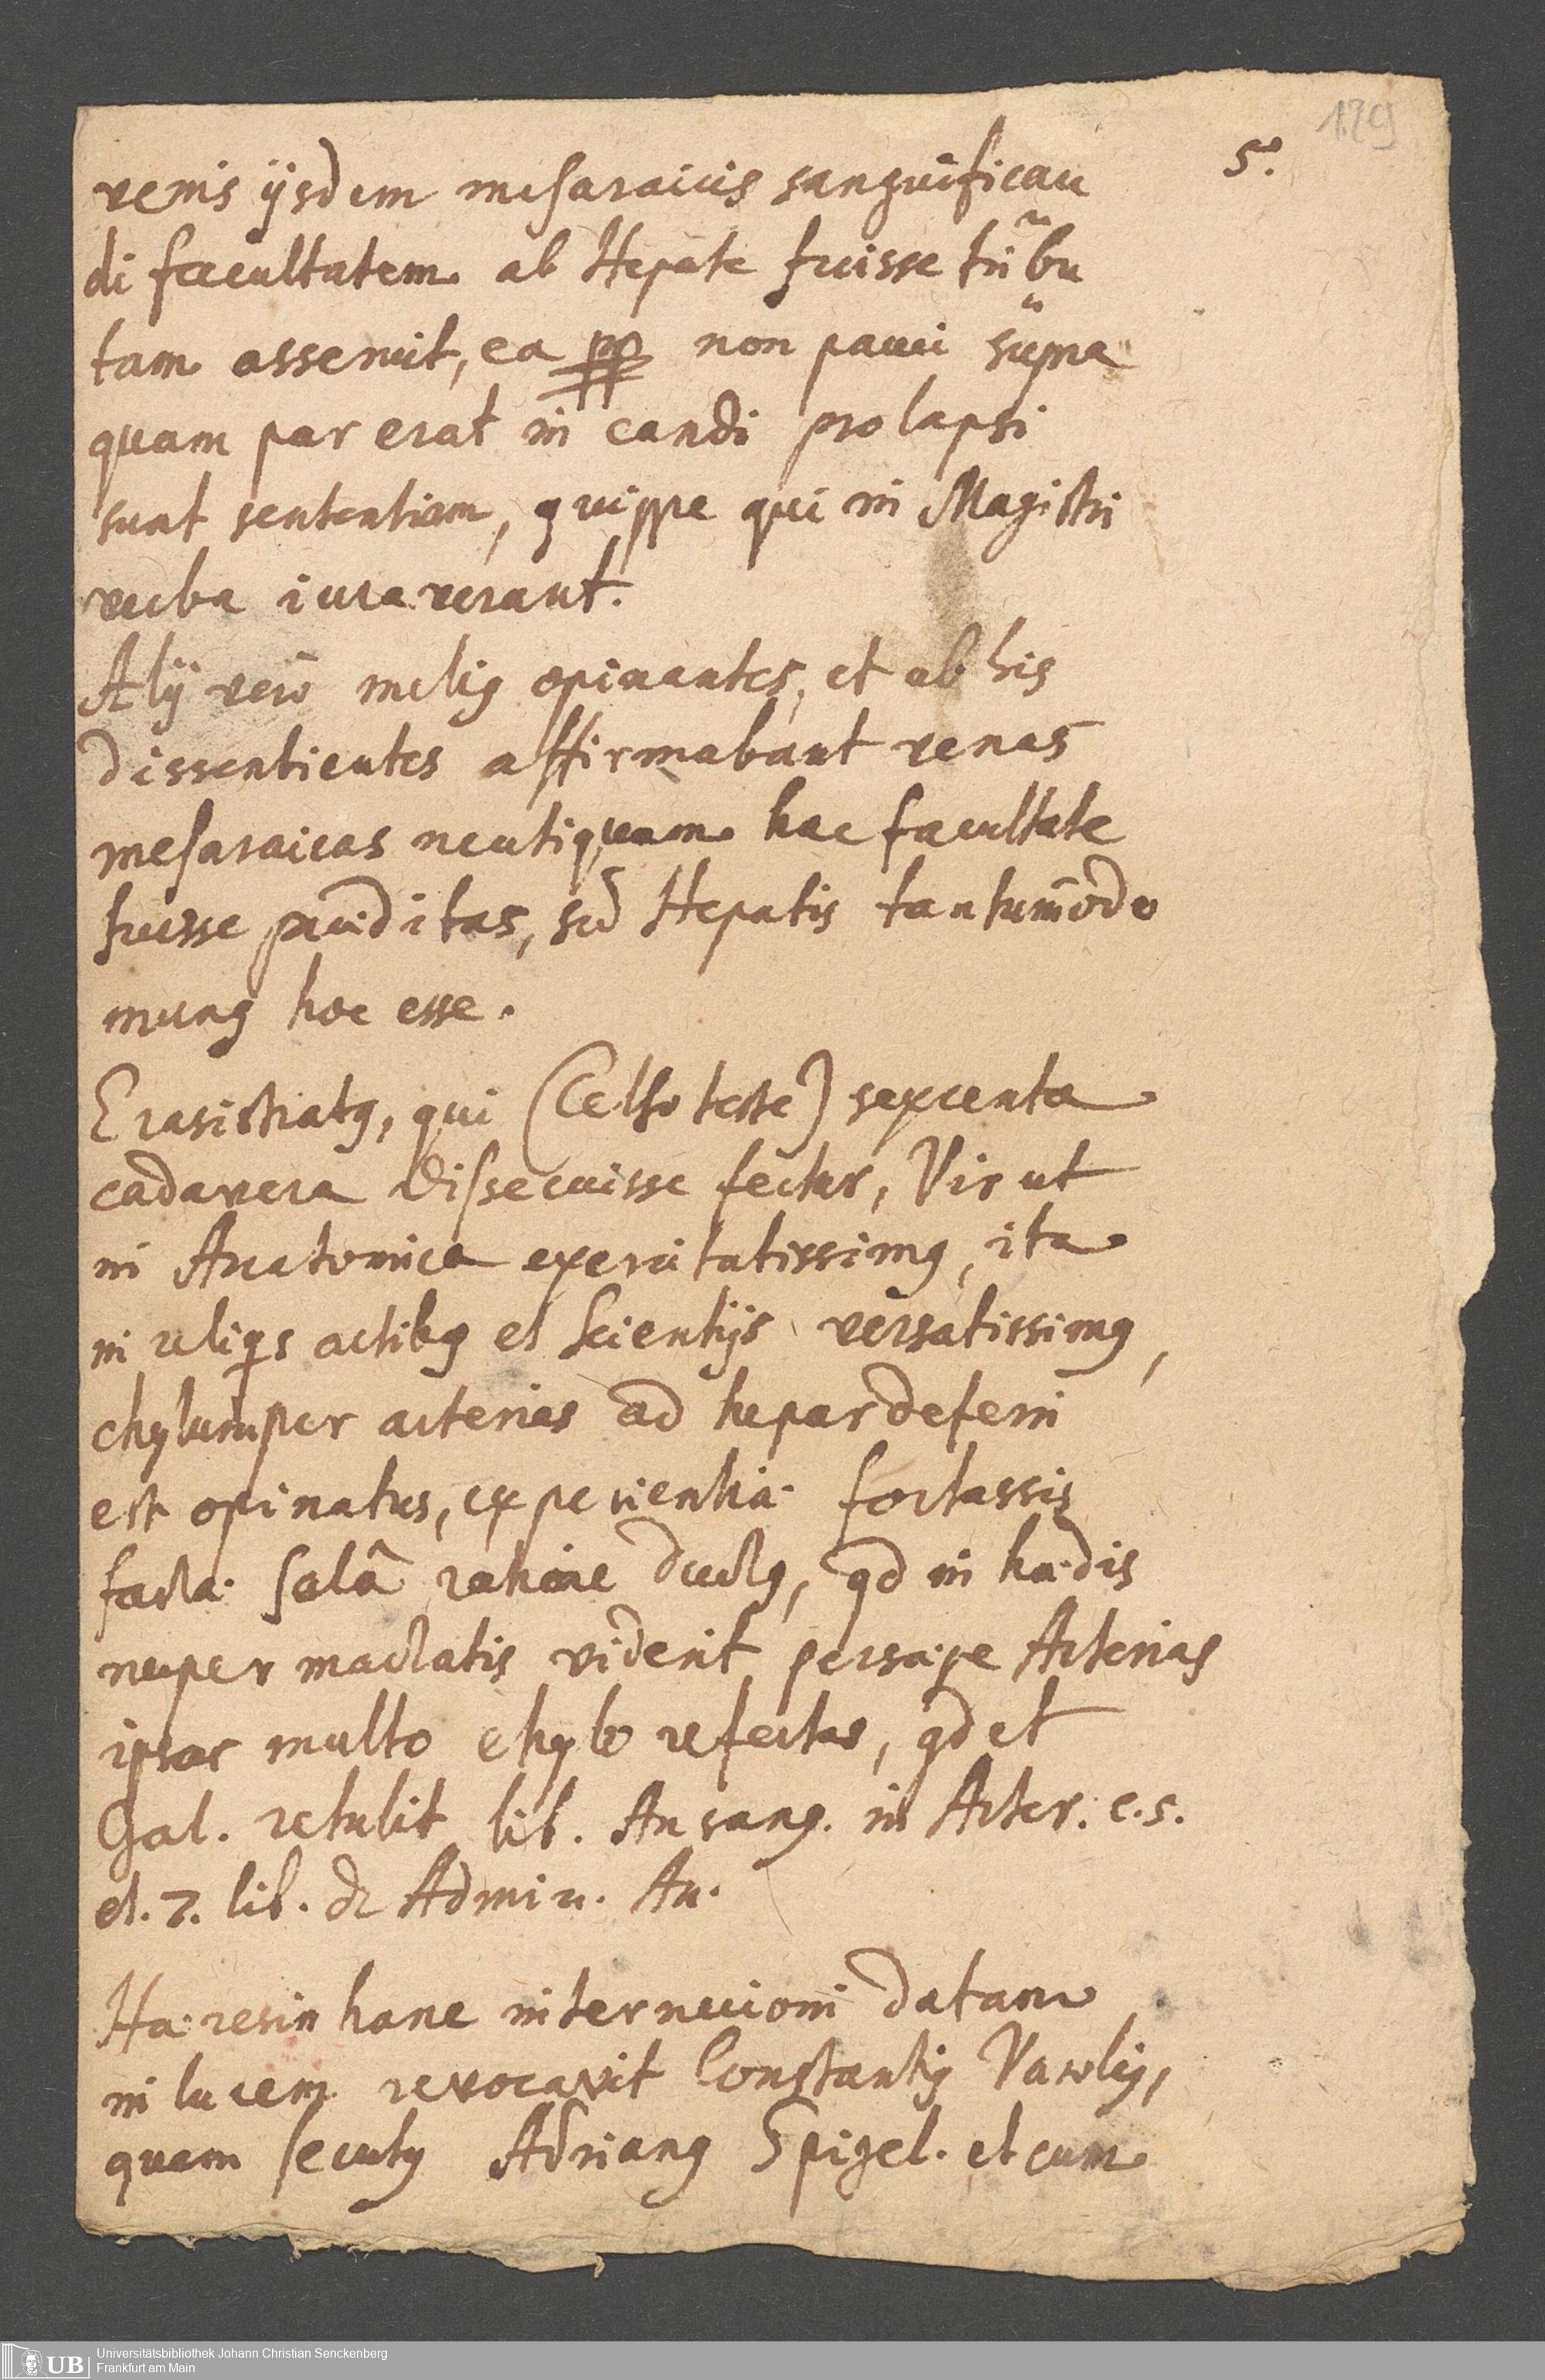 179
5.
venis ijsdem mesaraicis sanguifican
di facultatem ab Hepate fuisse tribu
tam asseruit, ea pp non pauci supra
quam par erat in eandē prolapsi
sunt sententiam, quippe qui in Magistri
verba iuraverant.
Alij verò meliꝰ opinantes, et ab his
dissentientes affirmabant venas
mesaraicas neutiquam hac facultate
fuisse præditas, sed Hepatis tantum̄odo
munꝰ hoc esse.
Erasistratꝰ, qui (Celso teste) sexcenta
cadavera dissecuisse fertur, Vir ut
in Anatomica exercitatissimꝰ, ita
in reliqs artibꝰ et scientijs versatissimꝰ,
chylum per arterias ad hepar deferri
est opinatus, experientia fortassis
facta solâ ratione ductꝰ, qd in hædis
nuper mactatis viderit persæpe Arterias
ipsas multo chylo refertas, qd et
Gal. retulit lib. An sang. in Arter. c. 5.
et. 7. lib. de Admin. An.
Hæresin hanc internecioni datam
in lucem revocavit Constantiꝰ Varoliꝰ,
quem secutꝰ Adrianꝰ Spigel. et cum
Universitätsbibliothek Johann Christian Senckenberg
Frankfurt am Main
UB